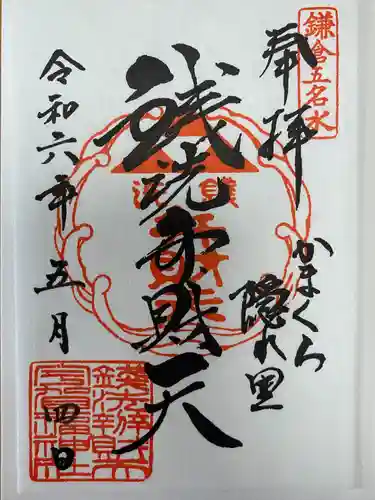 鎌倉五名水
奉拝
かまくら
隠れ里
銭洗弁財天
令和六年五月
四日